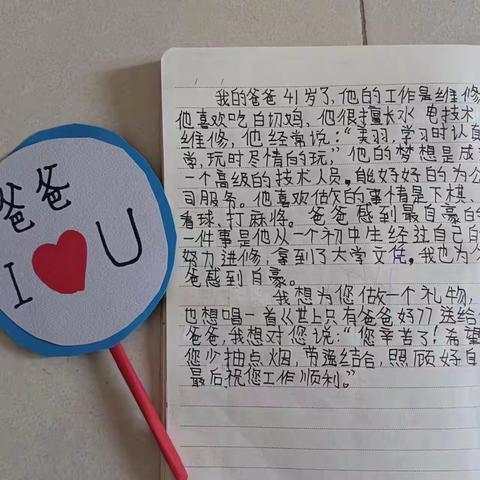 爸爸
I U
我的爸爸41岁了,他的工作是维修
他喜欢吃白切鸡。他很擅长水 电技术
维修,他经常说:“美羽,学习时认真
学,玩时尽情的玩;”他的梦想是成
一个高级的技术人员。能好好的为公
司服务。他喜欢做的事情是下棋、
看球、打麻将。爸爸感到最自豪的
一件事是他从一个初中生经过自己的
努力进修,拿到了大学文凭。我也为
爸感到自豪。
我想为您做一个礼物,
也想唱一首《世上只有爸爸好》送给
爸爸,我想对您说:“您辛苦了!希望
您少抽点烟,劳逸结合,照顾好自
最后,祝您工作顺利。”